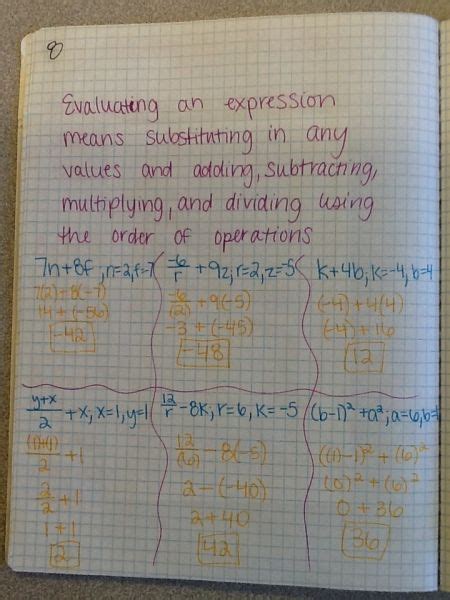 8
Evaluating an expression
means substituting in any
values and adding, subtracting,
multiplying, and dividing using
the order of operations
7n+8f, n=2, f=-7
7(2)+8(-7)
14+(-56)
-42
-6/r +9z, r=2, z=-5
-6/(2) +9(-5)
-3+(-45)
-48
k+4b, k=-4, b=4
(-4)+4(4)
(-4)+16
12
y+x/2 +x, x=1, y=1
(1)+(1)/2 +1
2/2 +1
1+1
2
12/r -8k, r=6, k=-5
12/(6) -8(-5)
2-(-40)
2+40
42
(b-1)²+a², a=6, b=1
((1)-1)²+(6)²
(0)²+(6)²
0+36
36